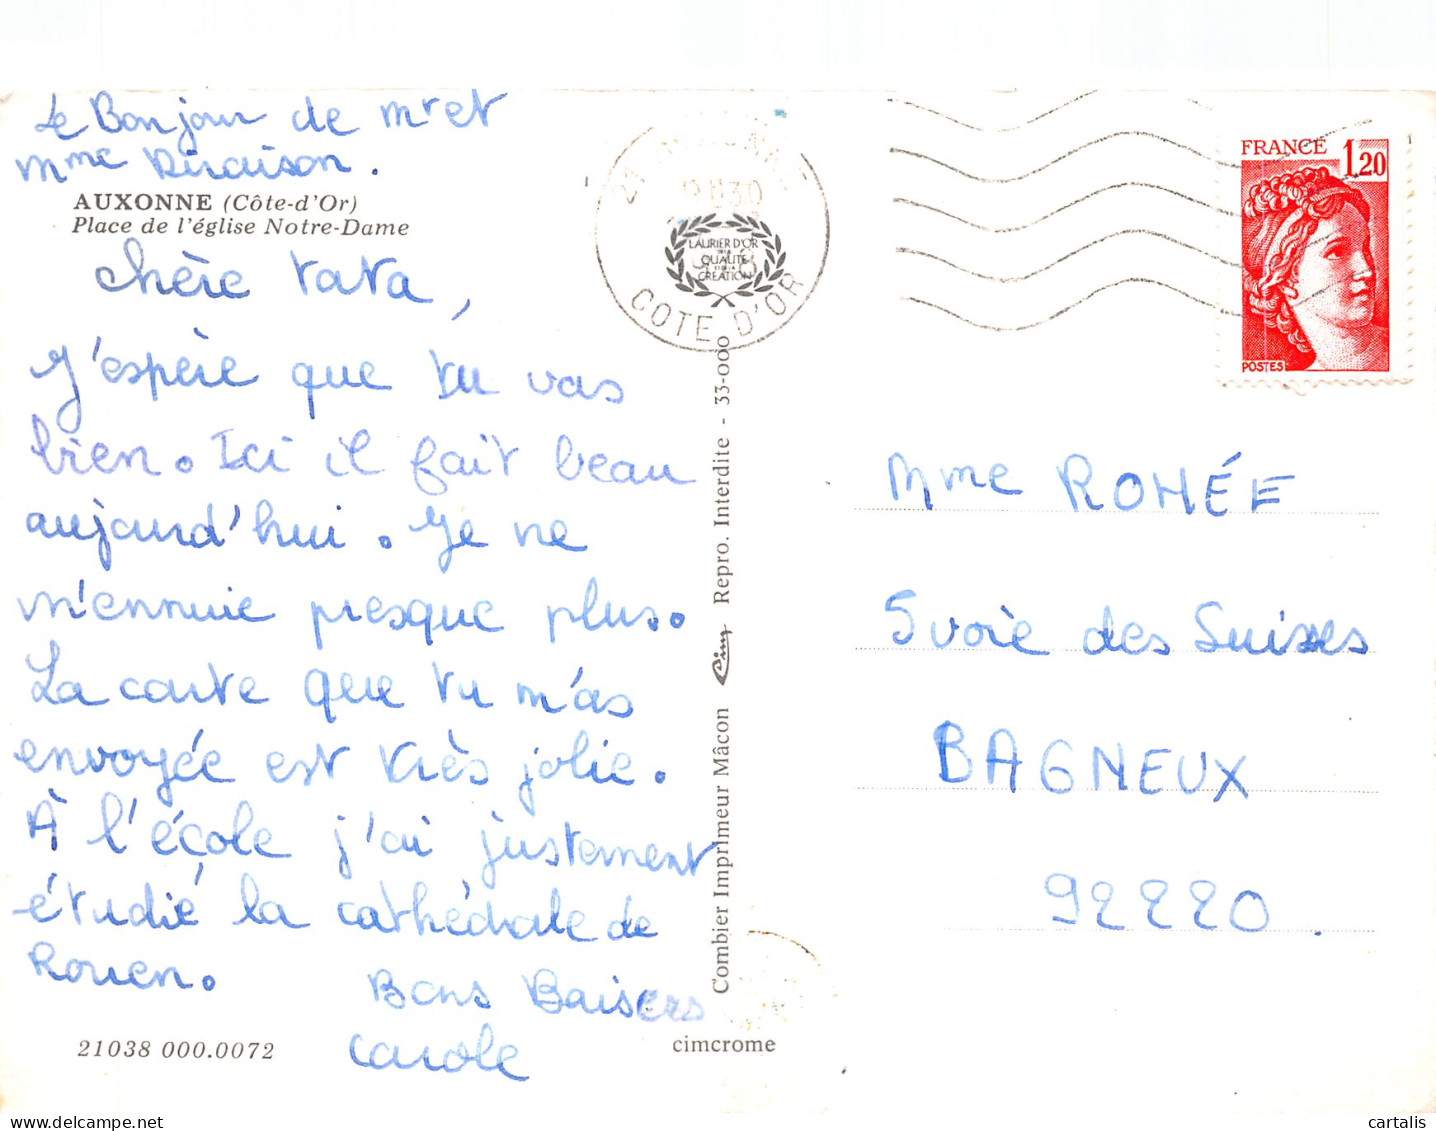 Le Bonjour de Mr et
Mme Diraison.
AUXONNE (Côte-d'Or)
Place de l'église Notre-Dame
chère tata,
J'espère que tu vas
bien. Ici il fait beau
aujourd'hui. Je ne
m'ennuie presque plus.
La carte que tu m'as
envoyée est très jolie.
À l'école j'ai justement
étudié la cathédrale de
Rouen.
Bons Baisers
Carole
21038 000.0072
cimcrome
Combier Imprimeur Mâcon Cim Repro. Interdite - 33-000
LAURIER D'OR
DE LA
QUALITÉ
CRÉATION
COTE D'OR
FRANCE 1,20
POSTES
Mme ROMÉE
5 voie des Suisses
BAGNEUX
92220.
cartalis
delcampe.net